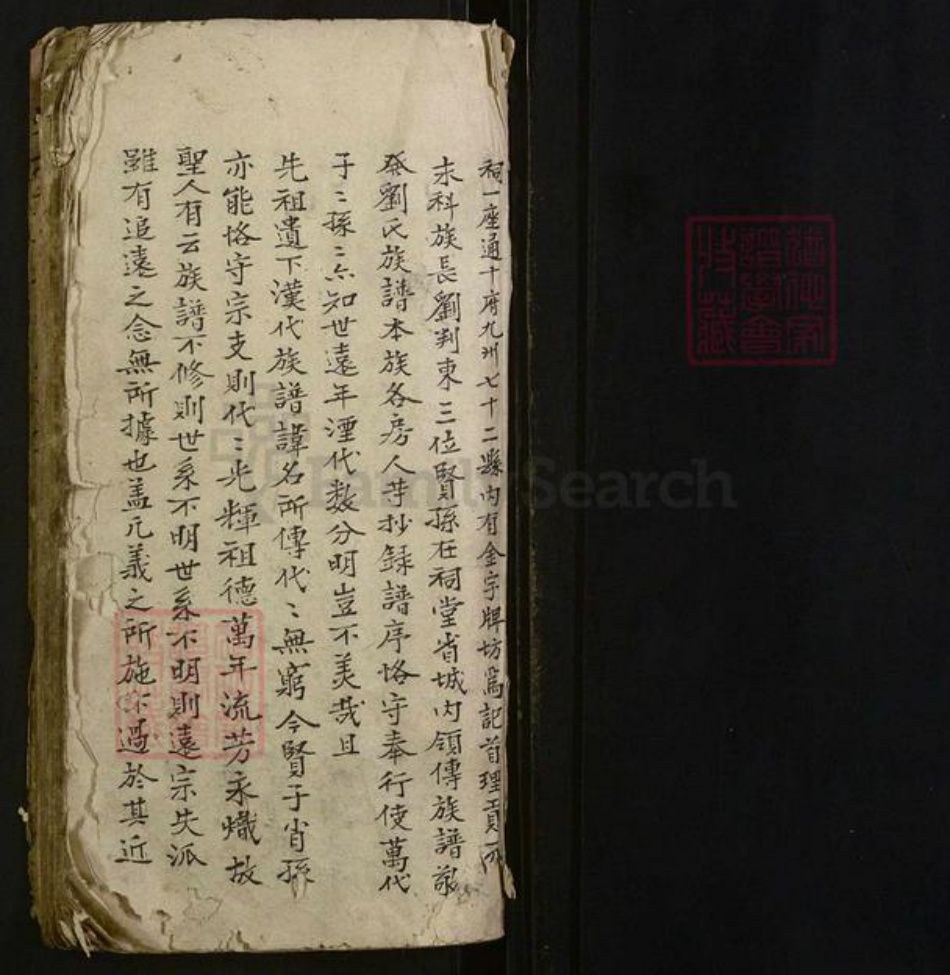 祠一座通十府九州七十二縣内有金字牌坊為記首理貢
未科族長劉判東三位賢孫在祠堂省城内領傳族譜敬
發劉氏族譜本族各房人等抄録譜序恪守奉行使萬代
子〻孫〻亦知世遠年湮代数分明豈不美哉且
先祖遺下漢代族譜諱名所傳代〻無窮今賢子肖孫
亦能恪守宗支則代〻光輝祖德萬年流芳永熾故
聖人有云族譜不修則世系不明世系不明則遠宗失派
雖有追遠之念無所據也盖凢義之所施不過於其近
FamilySearch